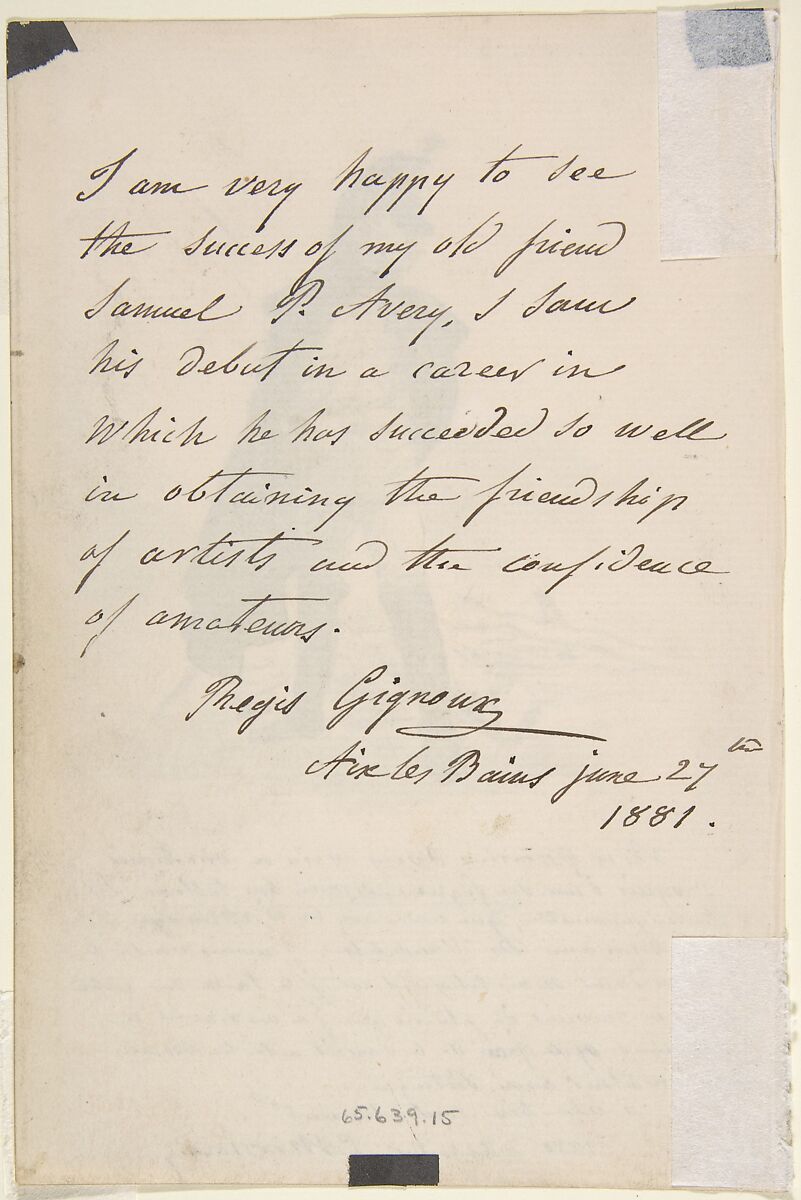 I am very happy to see
the success of my old friend
Samuel P. Avery, I saw
his debut in a career in
Which he has succeeded so well
in obtaining the friendship
of artists and the confidence
of amateurs.
Regis Gignoux
Aix les Bains june 27th
1881.
65.639.15